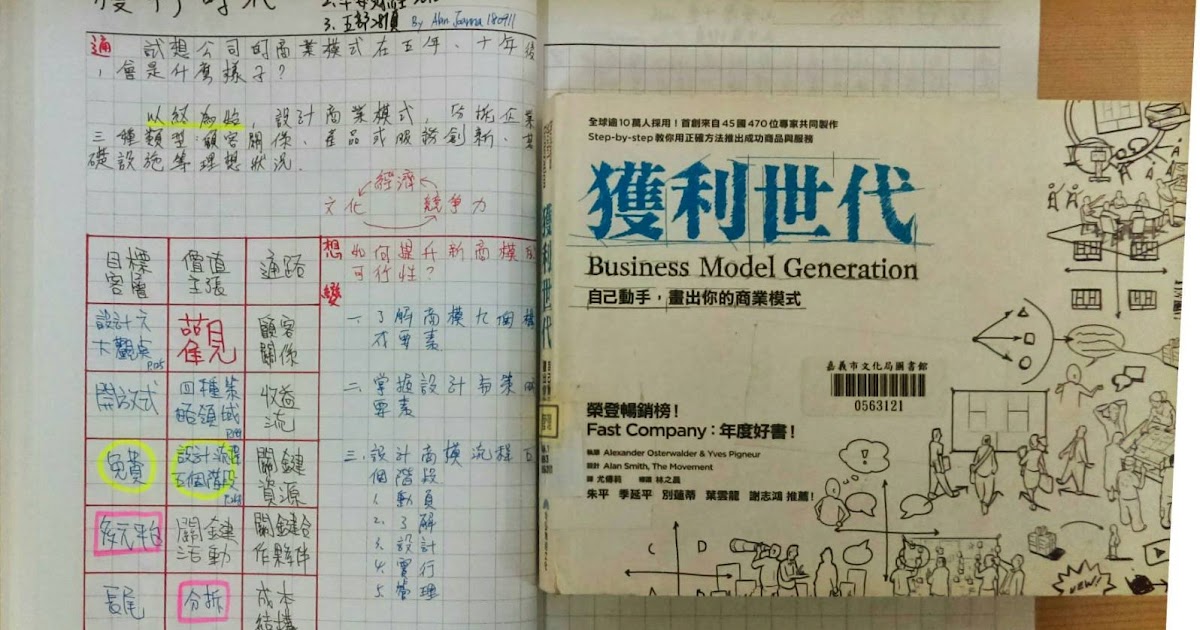 By Alan Joanna 180911
通 試想公司的商業模式在五年、十年後
，會是什麼樣子？
以終為始，設計商業模式，分析企業
三種類型：顧客關係、產品或服務創新、基
礎設施等理想狀況.
經濟
文化 競爭力
目標
客層
價值
主張
通路
想 如何提升新商模的
可行性？
變
設計六
大觀點
觀
顧客
關係
一、了解商模九個構
成要素
開放式
四種策
略領域
收益
流
二、掌握設計與策略
要素
免費
設計流程
五個階段
關鍵
資源
三、設計商模流程五
個階段
1. 動員
2. 了解
3. 設計
4. 實行
5. 管理
多元平台
關鍵
活動
關鍵合
作夥伴
長尾
分拆
成本
結構
獲利世代
全球逾10萬人採用！首創來自45國470位專家共同製作
Step-by-step教你用正確方法推出成功商品與服務
獲利世代
Business Model Generation
自己動手，畫出你的商業模式
嘉義市文化局圖書館
0563121
榮登暢銷榜！
Fast Company：年度好書！
執筆 Alexander Osterwalder & Yves Pigneur
設計 Alan Smith, The Movement
譯 尤傳莉 導讀 林之晨
朱平 季延平 別蓮蒂 葉雲龍 謝志鴻 推薦！
C D
NEW!